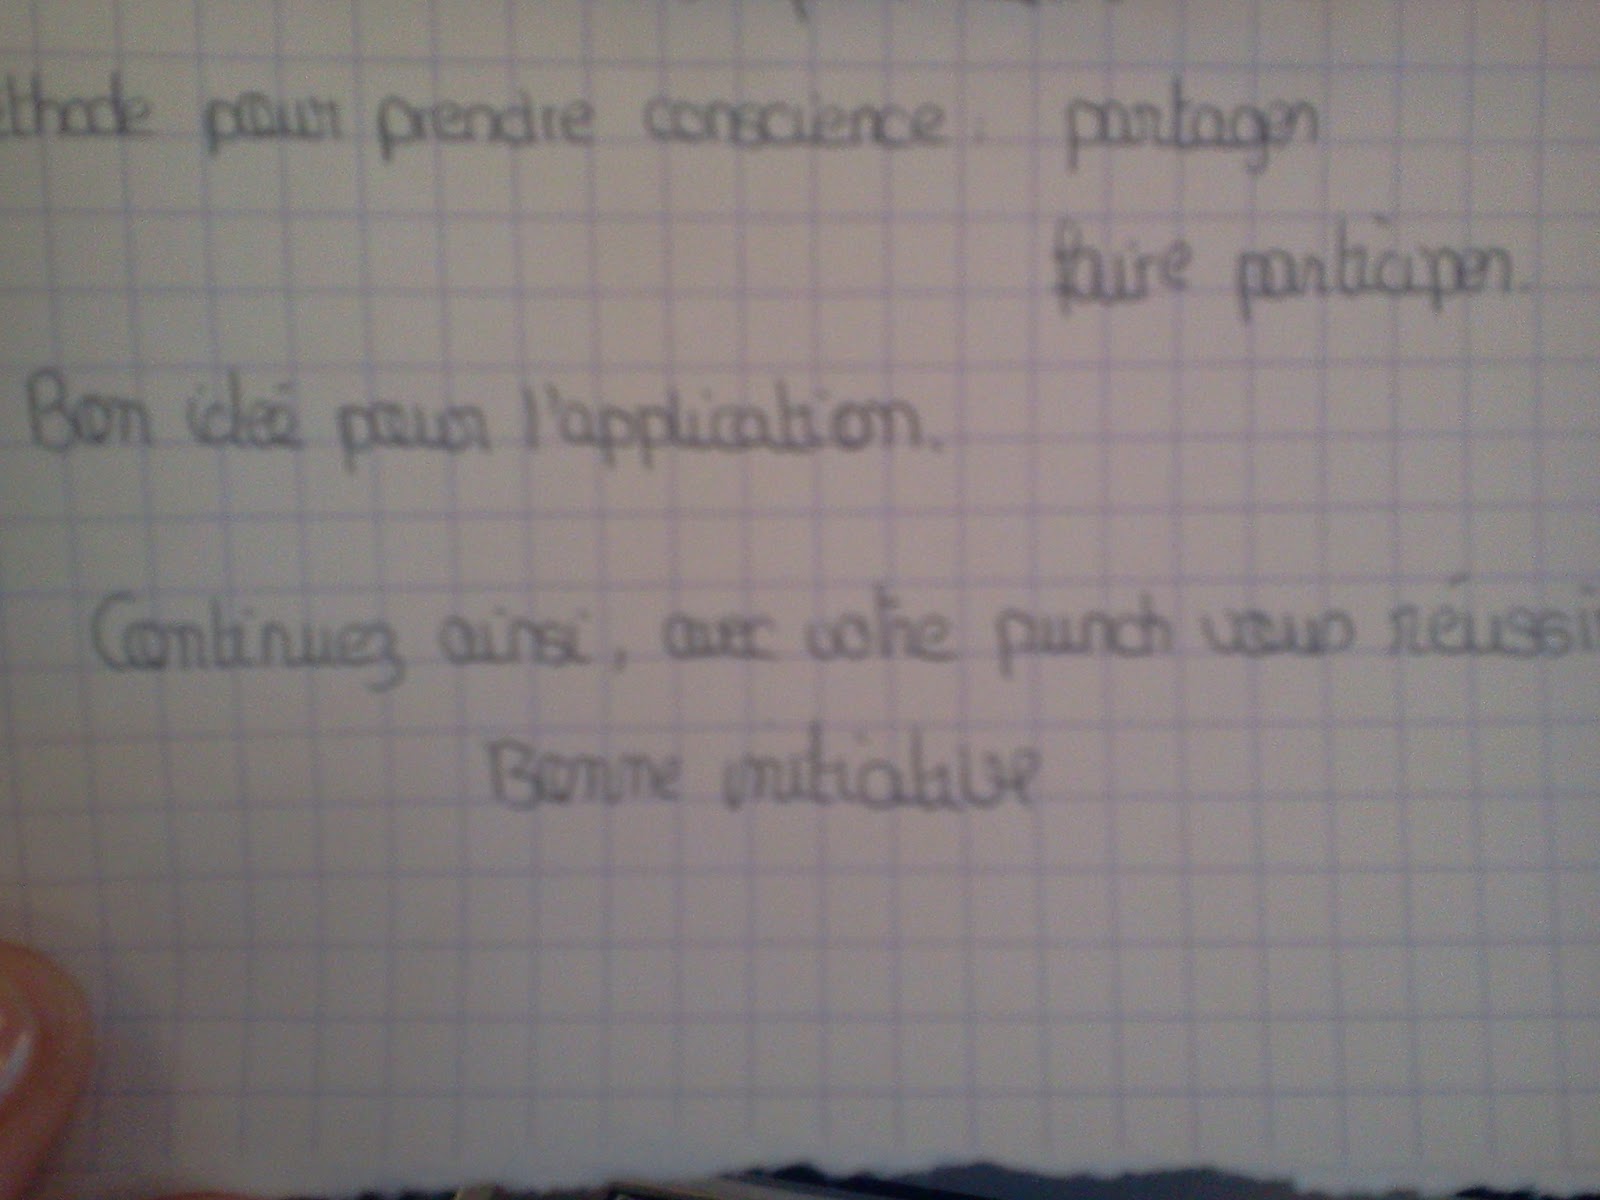 éthode pour prendre conscience : partager
faire participer.
Bon ideé pour l'application.
Continuez ainsi, avec votre punch vous réussi
Bonne initiative